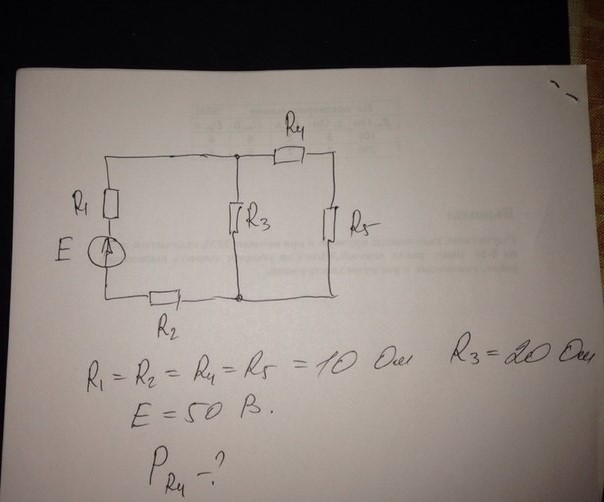 R4
R1
R3
R5
E
R2
R1 = R2 = R4 = R5 = 10 Ом R3 = 20 Ом
E = 50 В.
PR4 - ?